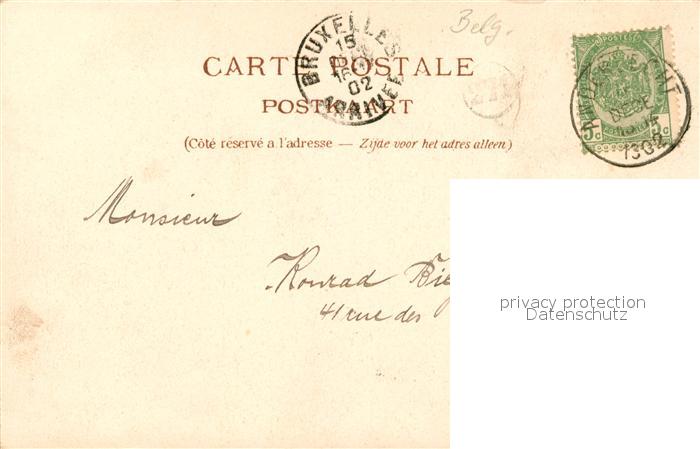 Belg.
BRUXELLES
15
16
02
ARRIVEE
CARTE POSTALE
POSTKAART
(Côté réservé a l'adresse — Zijde voor het adres alleen)
5c 5c
DECE
1902
Monsieur
Konrad Bie
41 rue des
privacy protection
Datenschutz